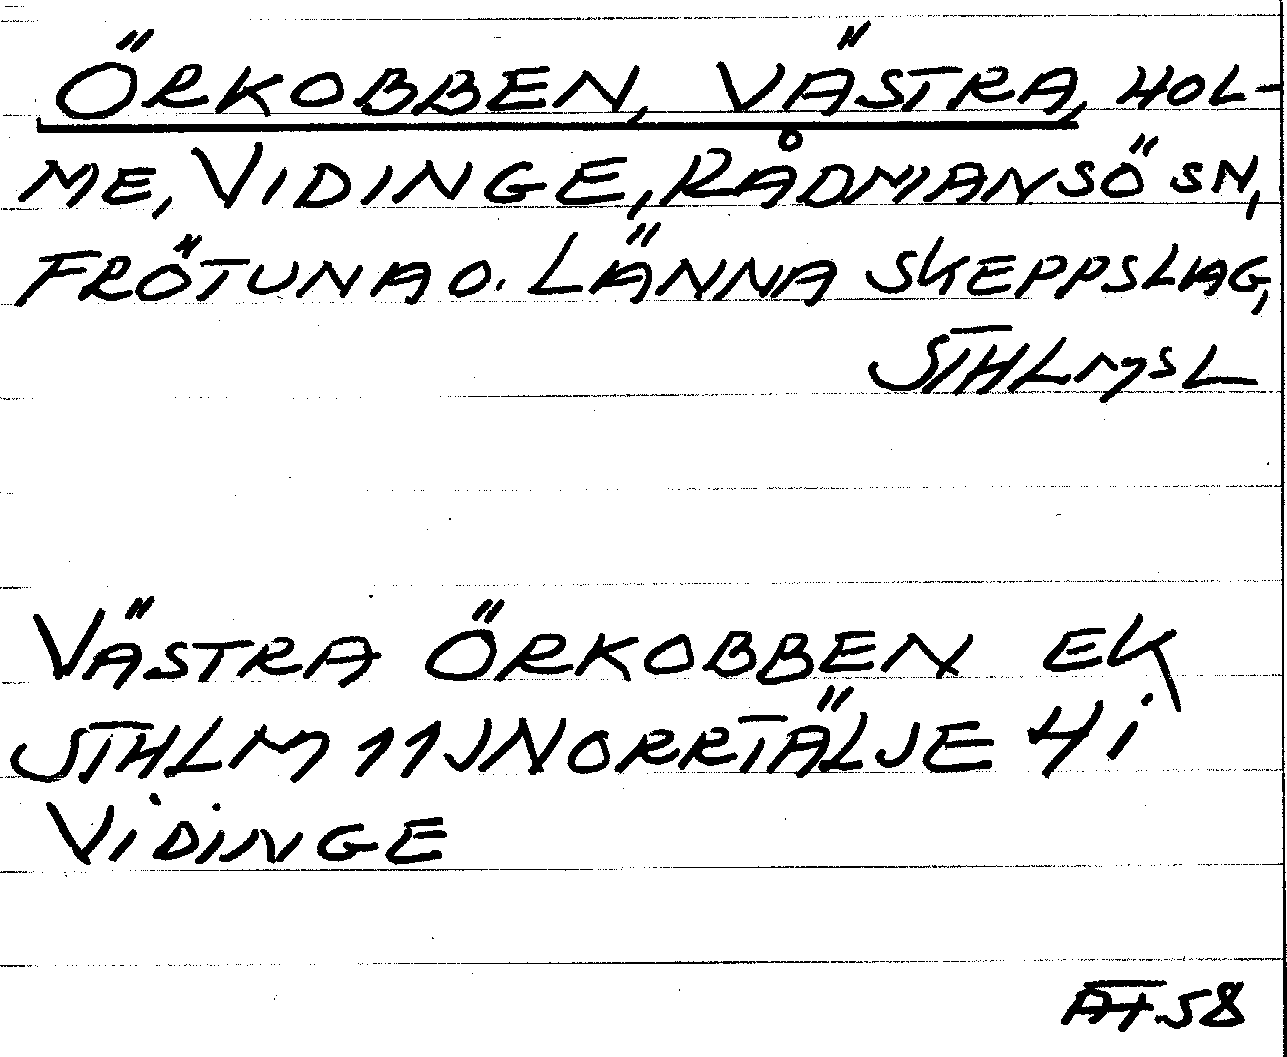 ÖRKOBBEN, VÄSTRA, HOL-
ME, VIDINGE, RÅDMANSÖ SN,
FRÖTUNA O. LÄNNA SKEPPSLAG,
STHLMSL
VÄSTRA ÖRKOBBEN EK
STHLM 11J NORRTÄLJE 4i
VIDINGE
58